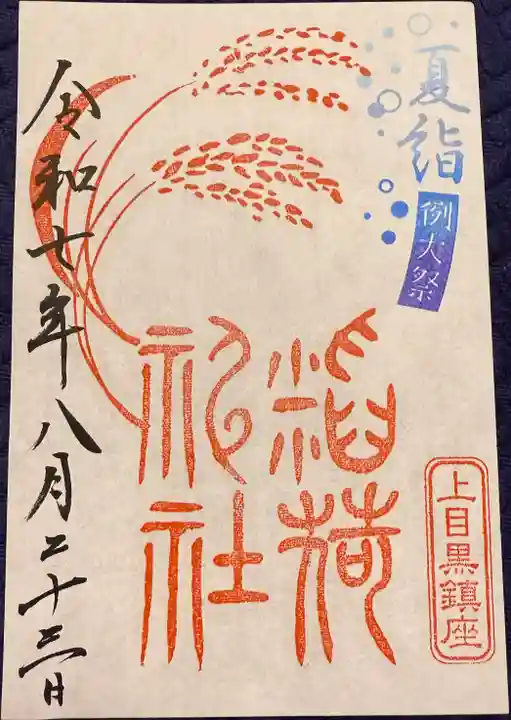 夏詣
例大祭
上目黒鎮座
稲荷
神社
令和七年八月二十三日